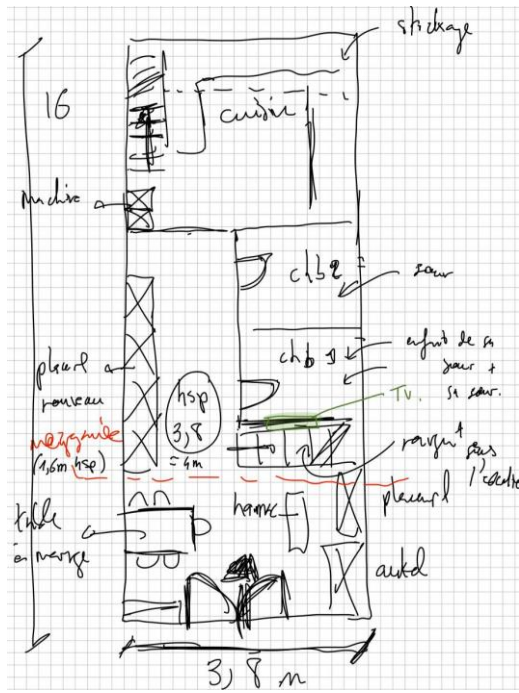 stickage
16
cuisine
machine
chb 2
sœur
chb 1
enfant de sa
sœur +
sa sœur.
TV.
placard
rouveau
hsp
3,8
= 4m
mezzanine
(1,6m hsp)
rangmt
sous
l'escalier
placard
table
à manger
hamac
autel
3,8 m